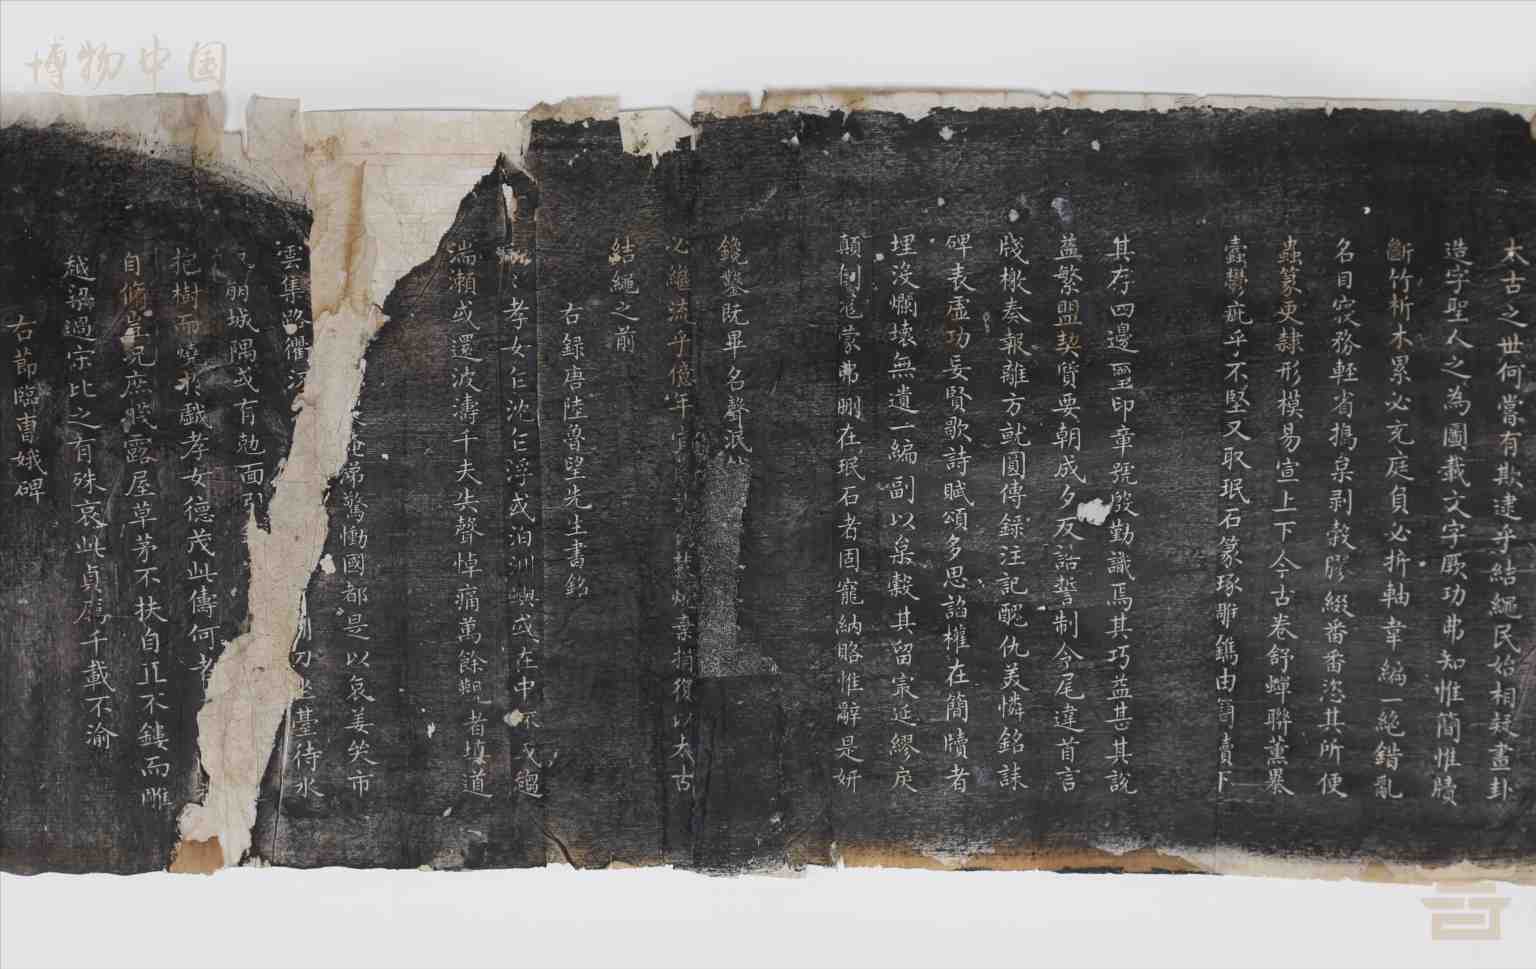 博物中国
太古之世何嘗有欺逮乎結繩民始相疑畫卦
造字聖人之為圖載文字厥功弗知惟簡惟牘
斷竹析木累必充庭負必折軸韋編一絶錯亂
名目寖務輕省搗杲剥榖膠綴番番恣其所便
蟲篆更隷形模易宣上下今古卷舒蟬聯薰㬥
蠹鬱疵乎不堅又取珉石篆琢雕鐫由
其存四邊璽印章號殷勤識焉其巧葢甚其說
葢繁盟契質要朝成夕反誥誓制令尾違首言
牋檄奏報離方就圓傳録注記醜仇美憐銘誄
碑表虚功妄賢歌詩賦頌多思諂權在簡牘者
埋没爛壞無遺一編副以杲榖其留宗延繆戾
顛倒寃蒙弗刪在珉石者固寵納賂惟辭是妍
鐫鑿既畢名聲泯
必繼流乎億年棄捐復以太古
結繩之前
右録唐陸魯望先生書銘
孝女亡沈亡浮或泊洲嶼或在中
湍瀬或還波濤千夫失聲悼痛萬餘觀者填道
雲集路衢
驚慟國都是以哀姜哭市
臺待水
城隅或有剋面引
抱樹而燒於戲孝女德茂此儔何者
自脩豈況庶賤露屋草茅不扶自直不鏤而雕
越梁過宋比之有殊哀此貞厲千載不渝
右節臨曹娥碑